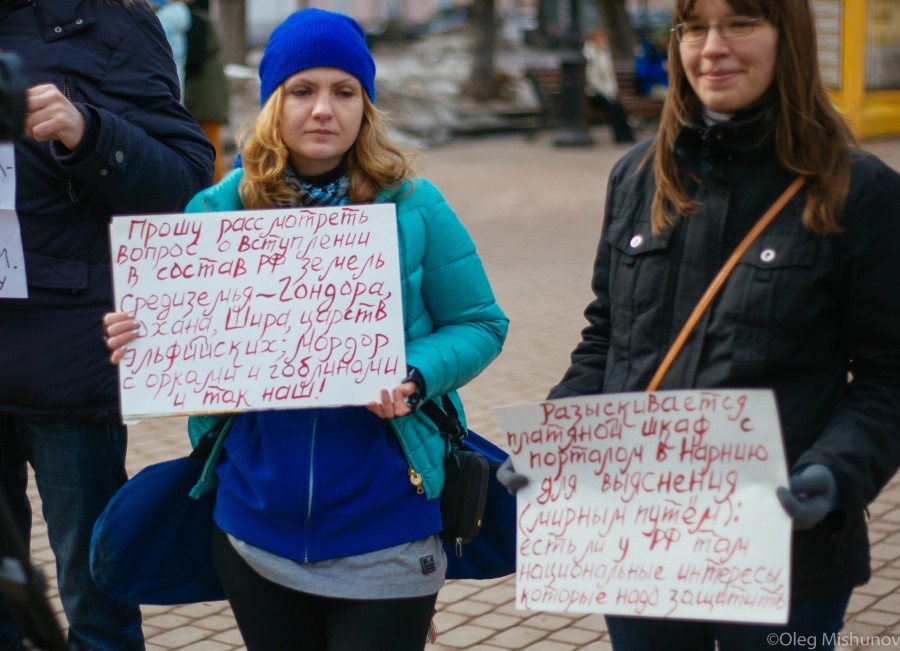 Прошу рассмотреть
вопрос о вступлении
в состав РФ земель
средиземья – Гондора,
Рохана, Шира, царств
эльфийских; мордор
с орками и гоблинами
и так наш!
Разыскивается
платяной шкаф с
порталом в Нарнию
для выяснения
(мирным путём):
есть ли у РФ там
национальные интересы,
которые надо защитить
©Oleg Mishunov